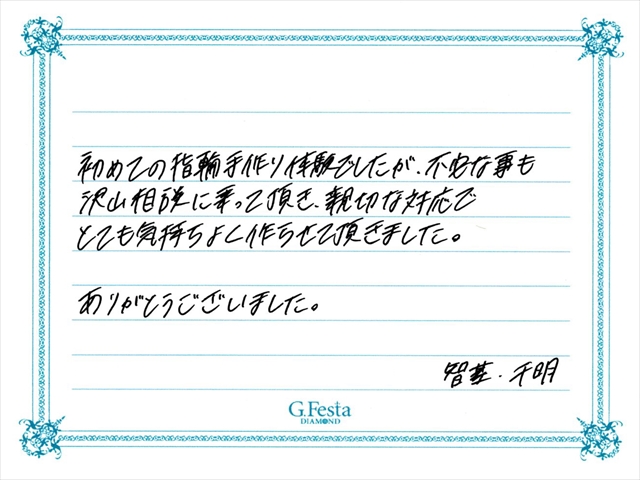 初めての指輪手作り体験でしたが、不安な事も
沢山相談に乗って頂き、親切な対応で
とても気持ちよく作らせて頂きました。
ありがとうございました。
智基・千明
G.Festa
DIAMOND